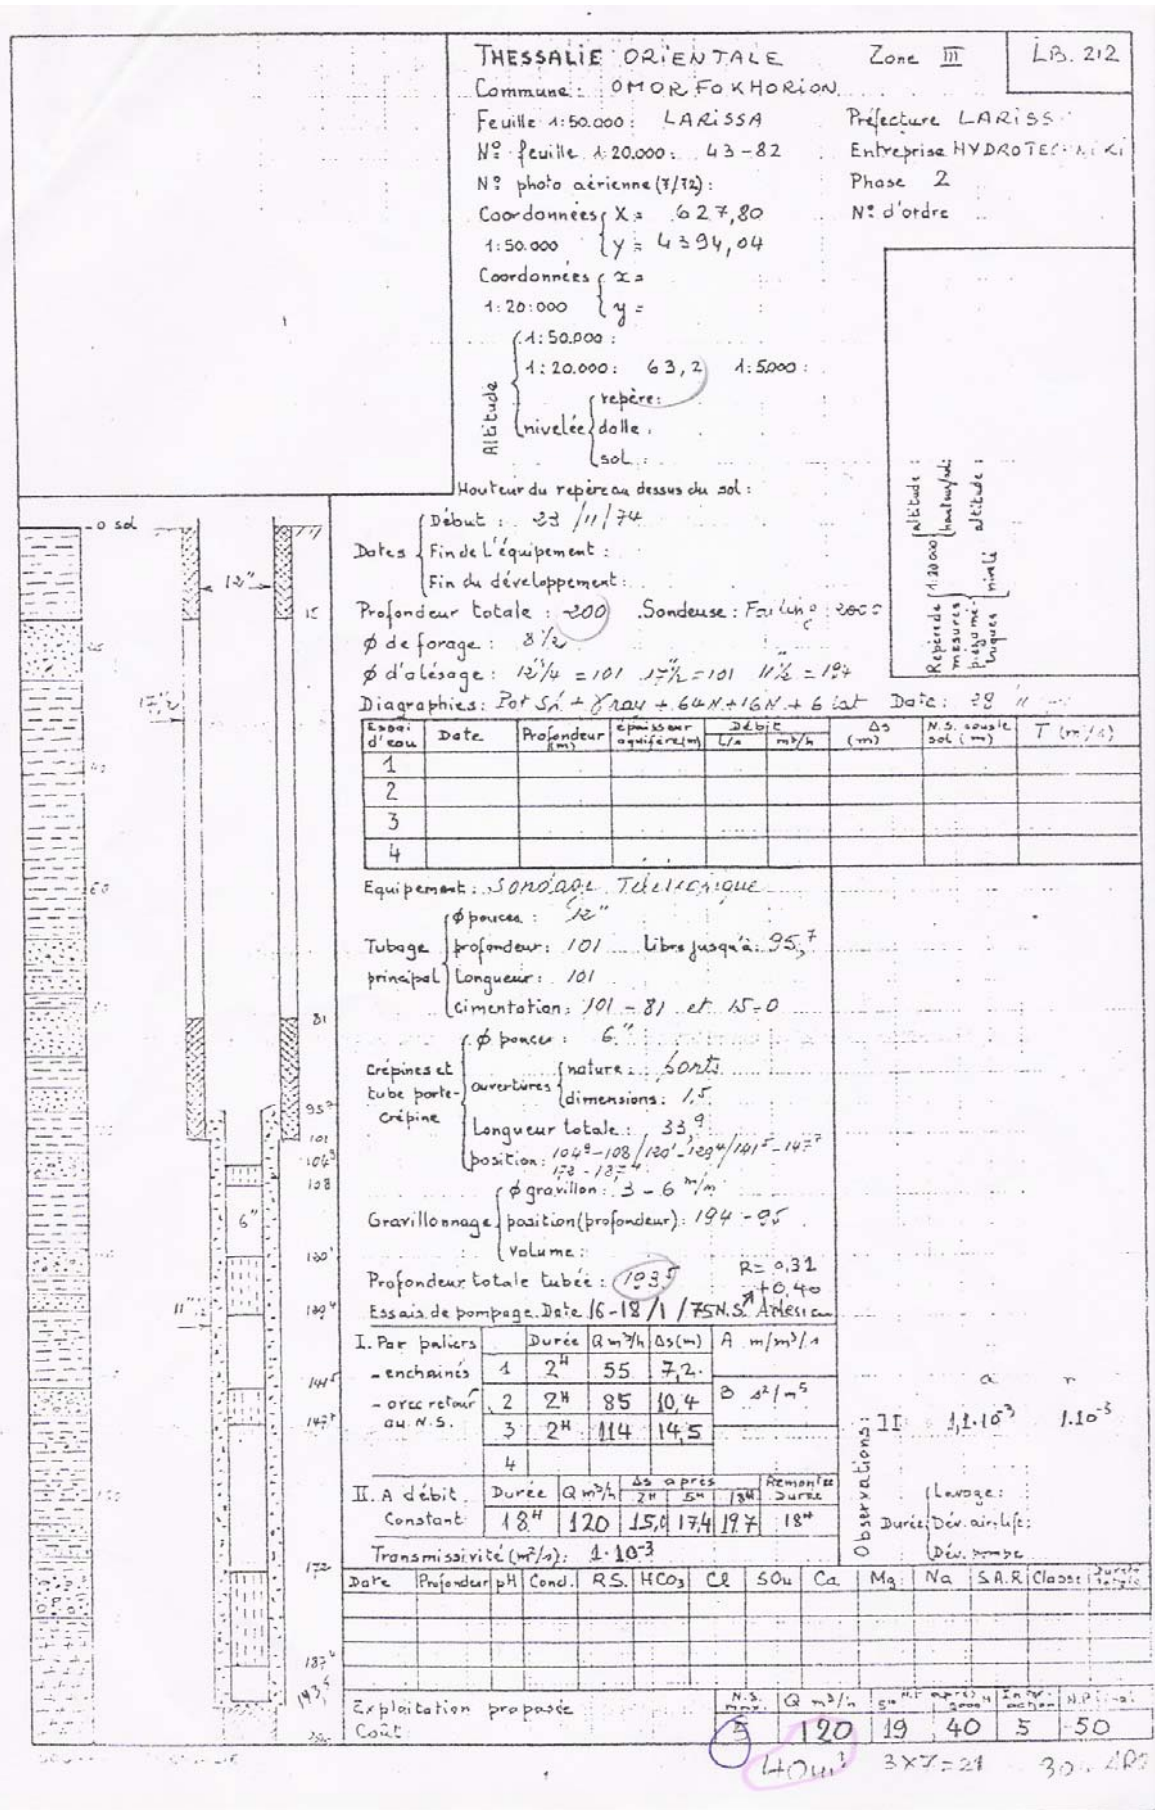 THESSALIE ORIENTALE Zone III LB. 212
Commune: OMORFOKHORION
Feuille 1:50.000: LARISSA Préfecture LARISS
Nº feuille 1:20.000: 43-82 Entreprise HYDROTEC
Nº photo aérienne (7/72): Phase 2
Coordonnées X = 627,80 Nº d'ordre
1:50.000 y = 4394,04
Coordonnées x =
1:20.000 y =
Altitude
1:50.000:
1:20.000: 63,2 1:5000:
nivelée repère:
dalle:
sol:
Hauteur du repère au dessus du sol:
Dates Début: 23/11/74
Fin de l'équipement:
Fin du développement:
Profondeur totale: 200 Sondeuse: Failing 2000
φ de forage: 8½
φ d'alésage: 12¼ = 101 17½ = 101 11½ = 194
Diagraphies: Pot Sp + γray + 64N + 16N + 6 lat Date: 29 11
Repère de mesures piézométriques 1:20000 altitude: nivelé altitude:
Essai d'eau Date Profondeur (m) épaisseur aquifère (m) Débit L/s m³/h Δs (m) N.S. sous le sol (m) T (m²/s)
1
2
3
4
Equipement: Sondage Telescopique
Tubage principal
φ pouces: 12"
profondeur: 101 Libre jusqu'à: 95,7
Longueur: 101
cimentation: 101 - 81 et 15-0
Crépines et tube porte-crépine
φ pouces: 6"
ouvertures nature:
dimensions: 1,5
Longueur totale: 33,9
position: 104⁹-108/120¹-129⁴/141⁵-147⁷
172-187⁴
Gravillonnage
φ gravillon: 3-6 m/m
position (profondeur): 194-95
volume:
Profondeur totale tubée: 193⁵ R = 0,31
+0,40
Essais de pompage. Date 16-18/1/75 N.S. Artésien
I. Par paliers Durée Q m³/h Δs (m) A m/m³/s
- enchainés 1 2H 55 7,2
- avec retour au N.S. 2 2H 85 10,4 B s²/m⁵
3 2H 114 14,5
4
II. A débit Constant Durée Q m³/h Δs après 2H 5H 18H Remontée Durée
18H 120 15,0 17,4 19,7 18H
Transmissivité (m²/s): 1·10⁻³
Observations: II 1,1·10⁻³ 1·10⁻³
a r
Durée Lavage:
Dév. air-lift:
Dév. pompe
Date Profondeur pH Cond. R.S. HCO₃ Cl SO₄ Ca Mg Na S.A.R Classe
Exploitation proposée N.S. Q m³/h
Coût 5 120 19 40 5 50
40 m³ 3×7=21
0 sol
12"
15
17½
81
95⁷
101
104⁹
108
6"
120¹
11"½
129⁴
141⁵
147⁷
172
187⁴
193,5